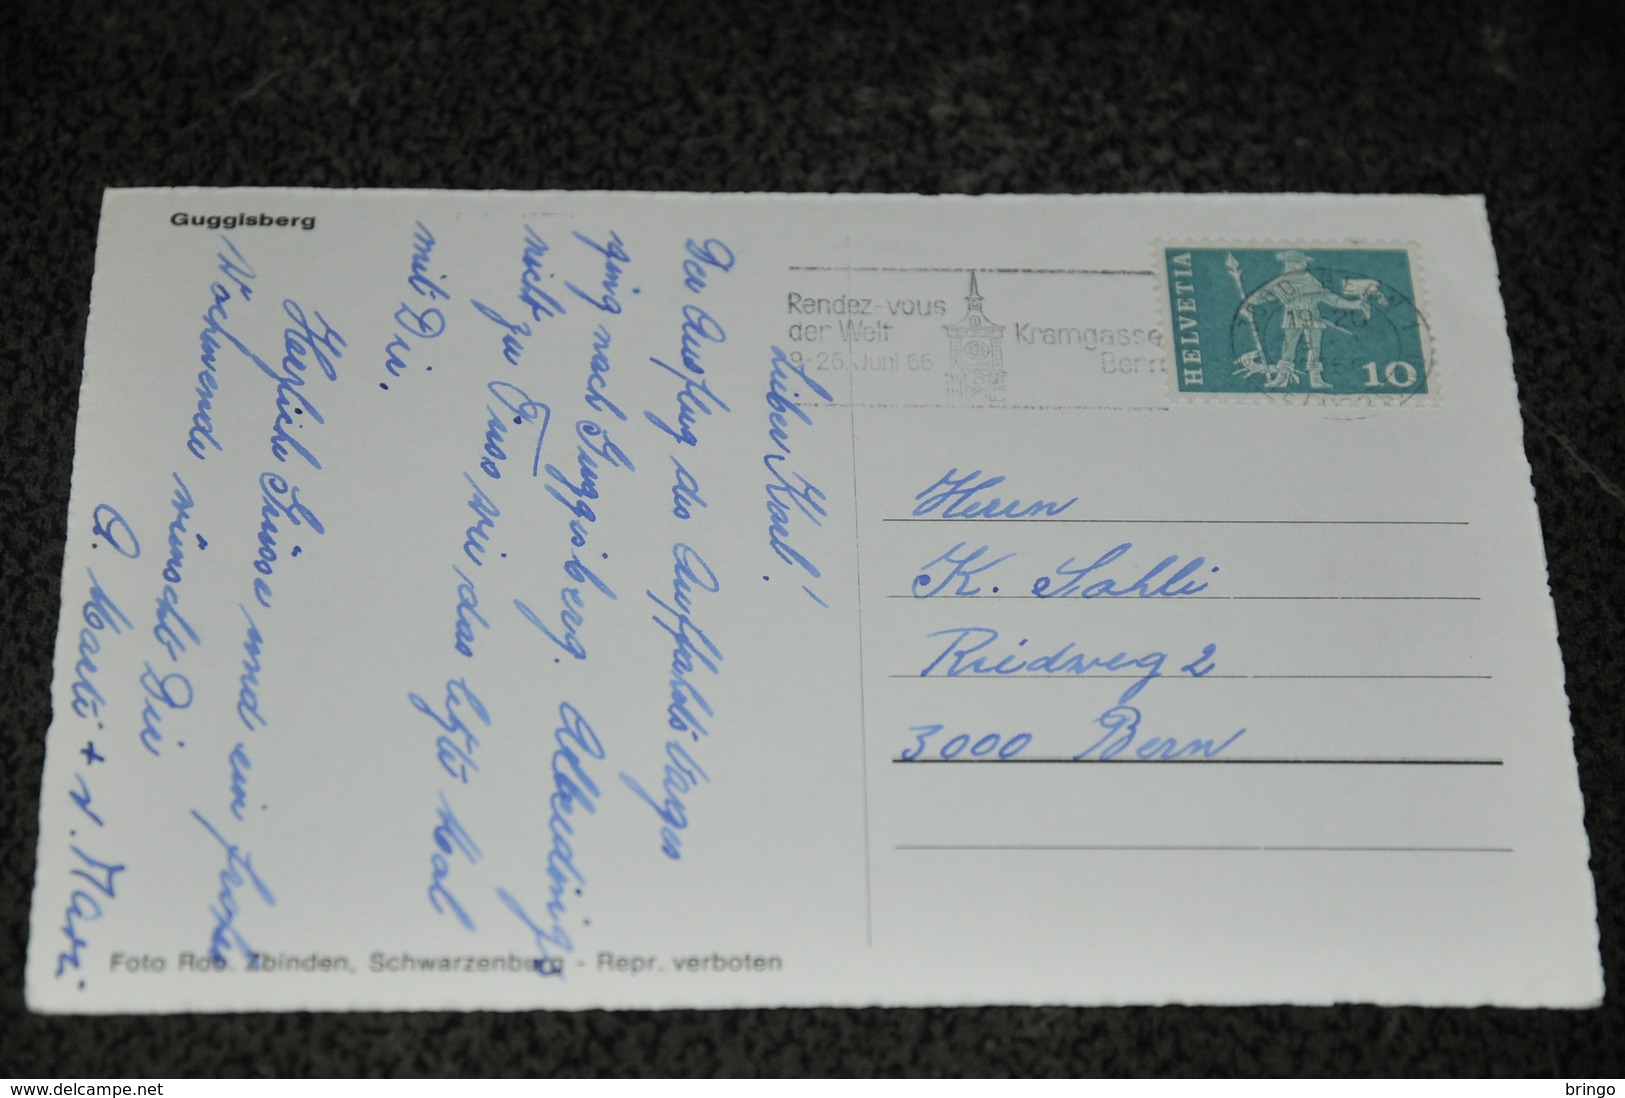 Guggisberg
Lieber Karl!
Der Ausflug des Auffahrtstages
ging nach Guggisberg. Allerdings
nicht zu Fuss wie das letzte Mal
mit Dir.
Herzliche Grüsse und ein frohes
Wochenende wünscht Dir
O. Marti + V. Marti
Foto Rob. Zbinden, Schwarzenburg - Repr. verboten
Rendez-vous
der Welt
9-26. Juni 66
Kramgasse
Bern
HELVETIA
10
3000 BERN 1
Herrn
K. Sahli
Riedweg 2
3000 Bern
www.delcampe.net
bringo